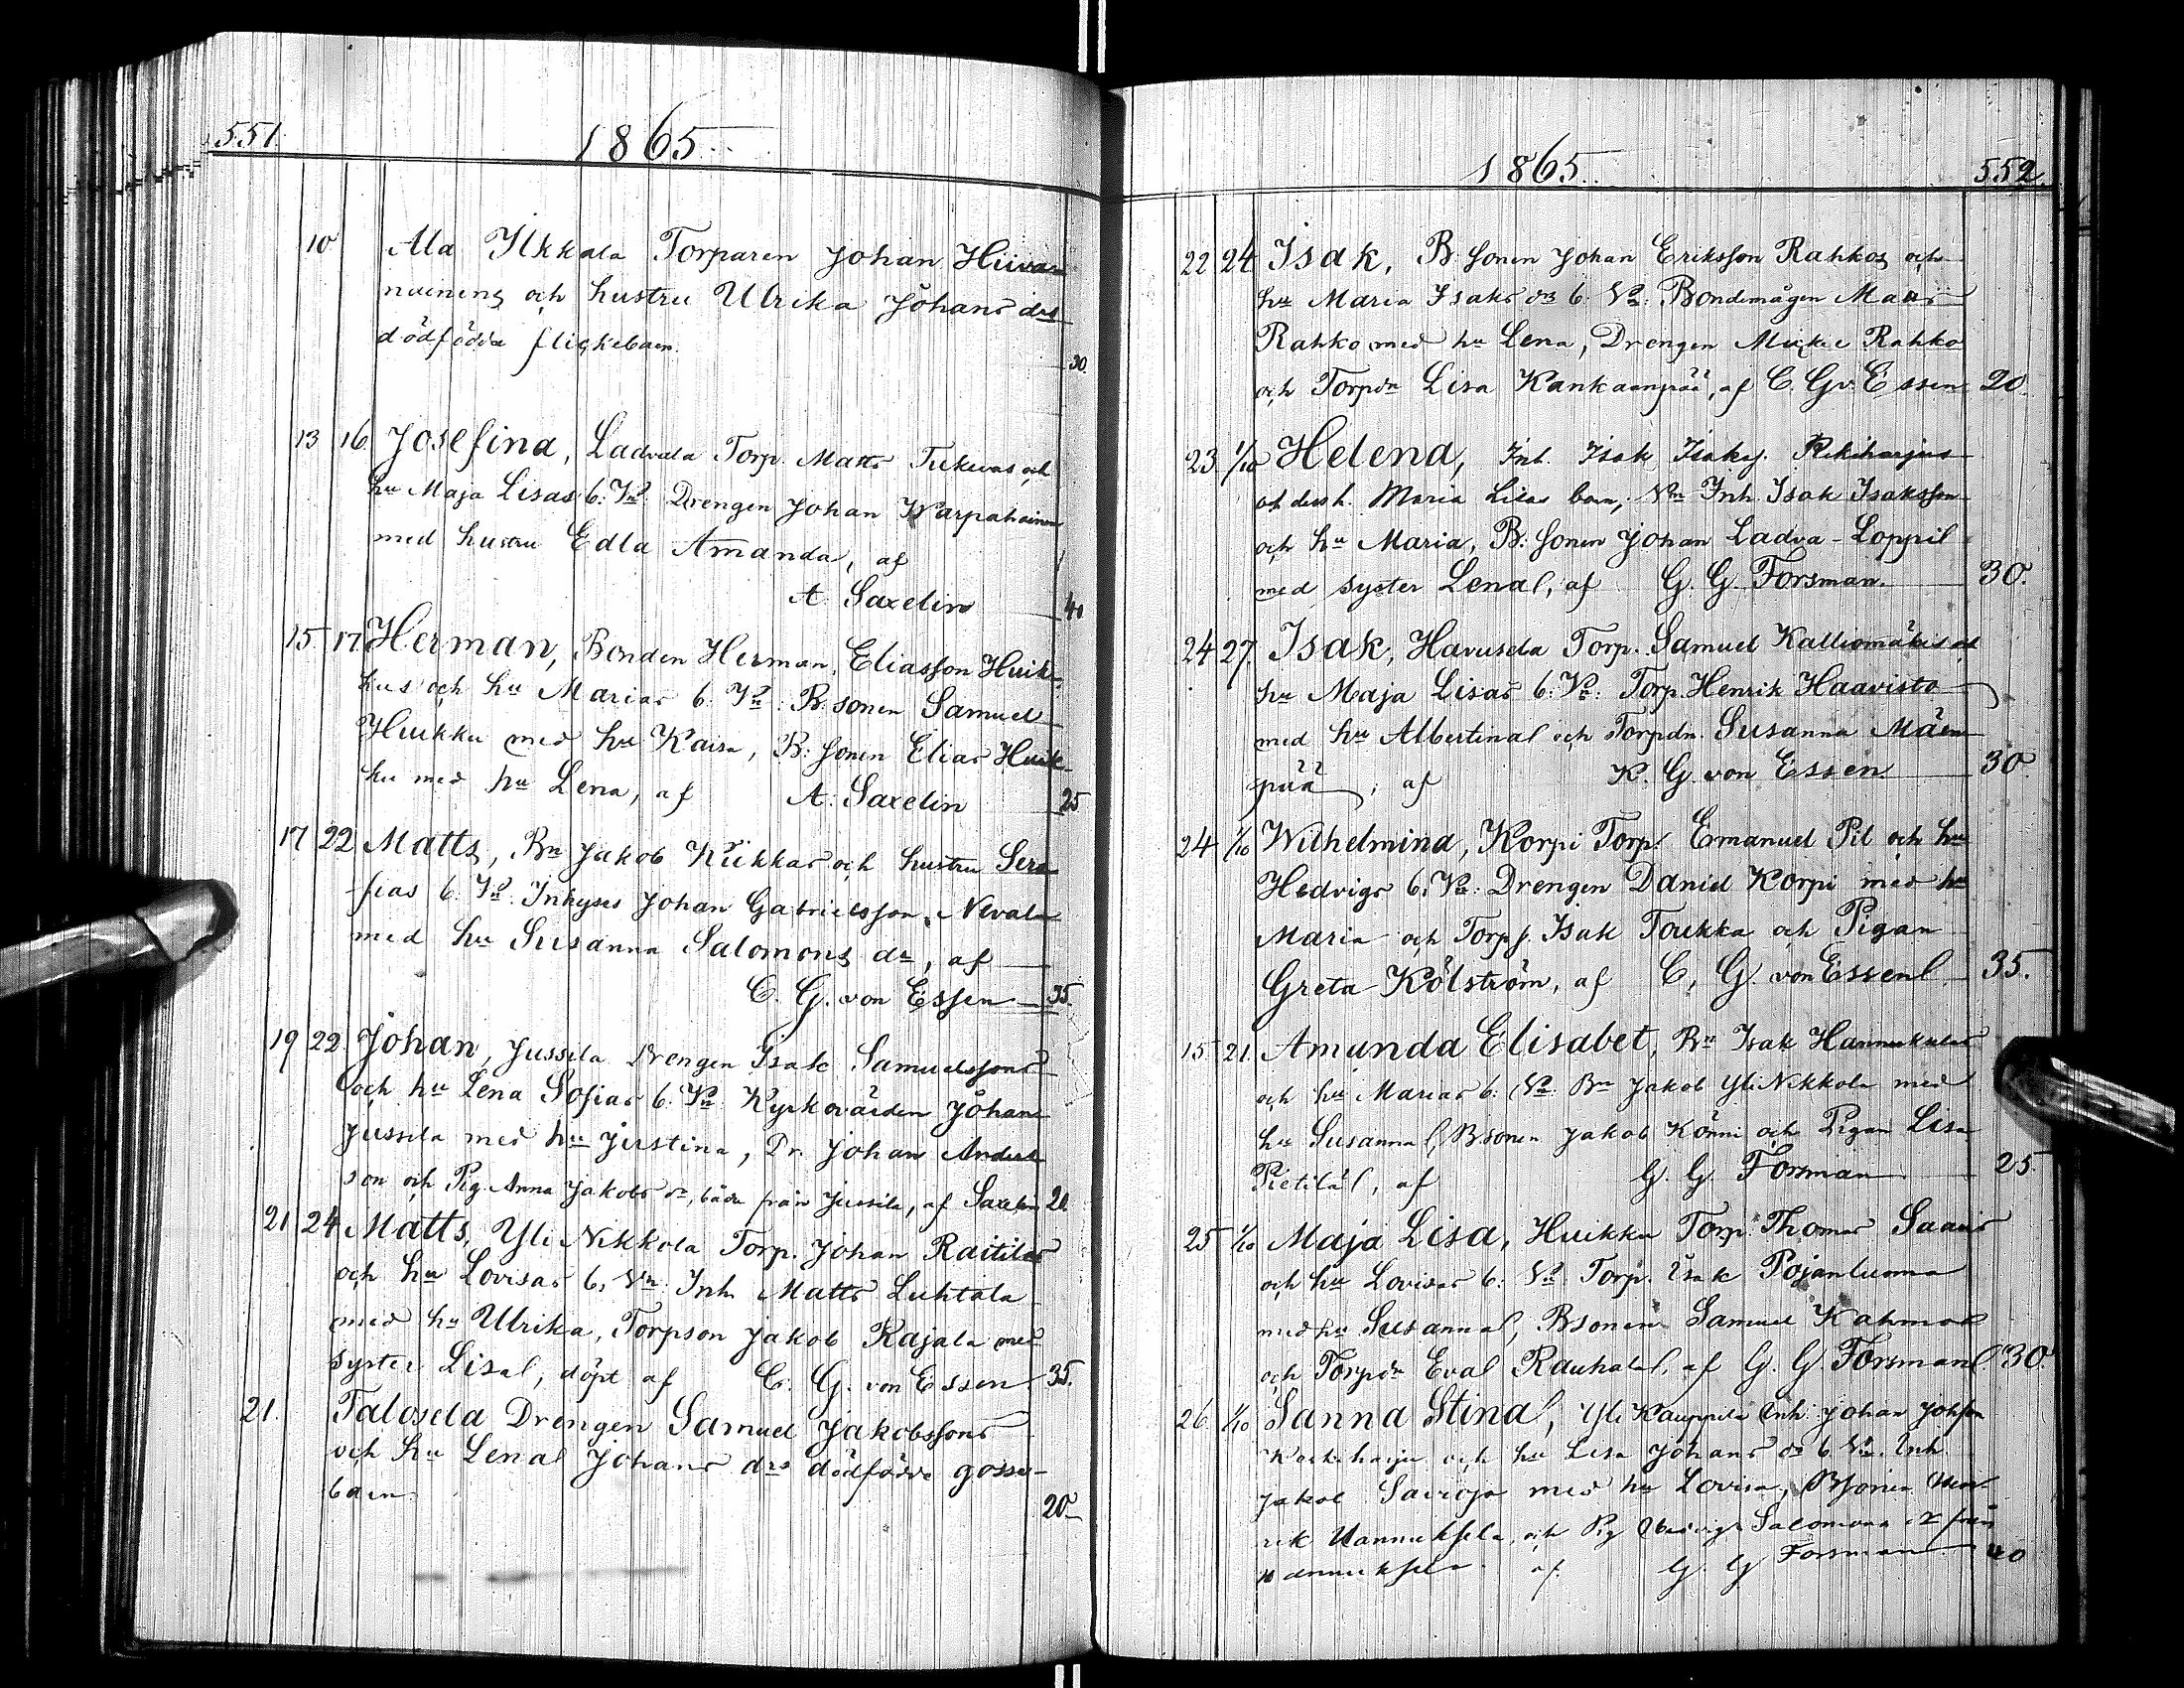 551.
1865
10 Ala Ilkkala Torparen Johan Hiivan
nainens och hustru Ulrika Johans drs
dödfödda flickebarn. 30.
13 16. Josefina, Ladvala Torp. Matts Tukevas och
hu Maja Lisas b: Vn: Drengen Johan Warpahainen
med hustru Edla Amanda, af
A. Saxelin 40
15 17 Herman, Bonden Herman Eliasson Huik-
kus och hu Marias b: Vn: B: sonen Samuel
Huikku med hu Kaisa, B: sonen Elias Huik-
ku med hu Lena, af A. Saxelin 25
17 22 Matts, Bn Jakob Kiikkas och hustru Sera-
fias b. Vn. Inhyses Johan Gabrielsson Nevala
med hu Susanna Salomons dr, af
C. G. von Essen 35.
19 22. Johan, Jussila Drengen Isak Samuelssons
och hu Lena Sofias b: Vn: Kyrkovärden Johan
Jussila med hu Justina, Dr. Johan Anders
son och Pig. Anna Jakobs dr, båda från Jussila, af Saxelin 20.
21 24 Matts, Yli Nikkola Torp. Johan Raitilas
och hu Lovisas b, Vn: Inh Matts Luhtala
med hu Ulrika, Torpson Jakob Rajala med
syster Lisa, döpt af C. G. von Essen. 35.
21. Talosela Drengen Samuel Jakobssons
och hu Lena Johans drs dödfödde gosse-
barn. 20
1865.
552.
22 24 Isak, B: sonen Johan Eriksson Rahkos och
hu Maria Isaks drs b: Vn: Bondemågen Matts
Rahko med hu Lena, Drengen Mickel Rahko
och Torpdr Lisa Kankaanpää, af C. G. v. Essen 20.
23 1/10 Helena, Inh. Isak Isaks. Rekiharjus
och dess h. Maria Lisas barn, Vn Inh. Isak Isaksson
och hu Maria, B: sonen Johan Ladva-Loppil
med syster Lena, af G. G. Forsman. 30.
24 27. Isak, Havusela Torp. Samuel Kalliomäkis och
hu Maja Lisas b: Vn: Torp. Henrik Haavisto
med hu Albertina och Torpdn. Susanna Mäen-
pää, af K. G. von Essen 30.
24 1/10 Wilhelmina, Korpi Torp. Emanuel Pil och hu
Hedvigs b: Vn: Drengen Daniel Korpi med hu
Maria och Torps. Isak Toukka och Pigan
Greta Kölström, af C, G. von Essen 35.
15 21. Amanda Elisabet, Bn Isak Hannukselas
och hu Marias b: Vn: Bn Jakob Yli Nikkola med
hu Susanna, Bsonen Jakob Könni och Pigan Lisa
Pietilä, af G. G. Forsman 25.
25 1/10 Maja Lisa, Huikku Torp. Thomas Saaris
och hu Lovisas b: Vn: Torp. Isak Pojanluoma
med hu Susanna, Bsonen Samuel Kahma
och Torpdr Eva Rauhala, af G. G. Forsman 30.
26. 1/10 Sanna Stina, Yli Kauppila Inh. Johan Johsson
harju och hu Lisa Johans drs b. Vn. Inh.
Jakob Savioja med hu Lovisa, Bsonen Hen-
rik Hannuksela, och Pig Hedvig Salomons dr från
Hannuksela. af G. G. Forsman 40